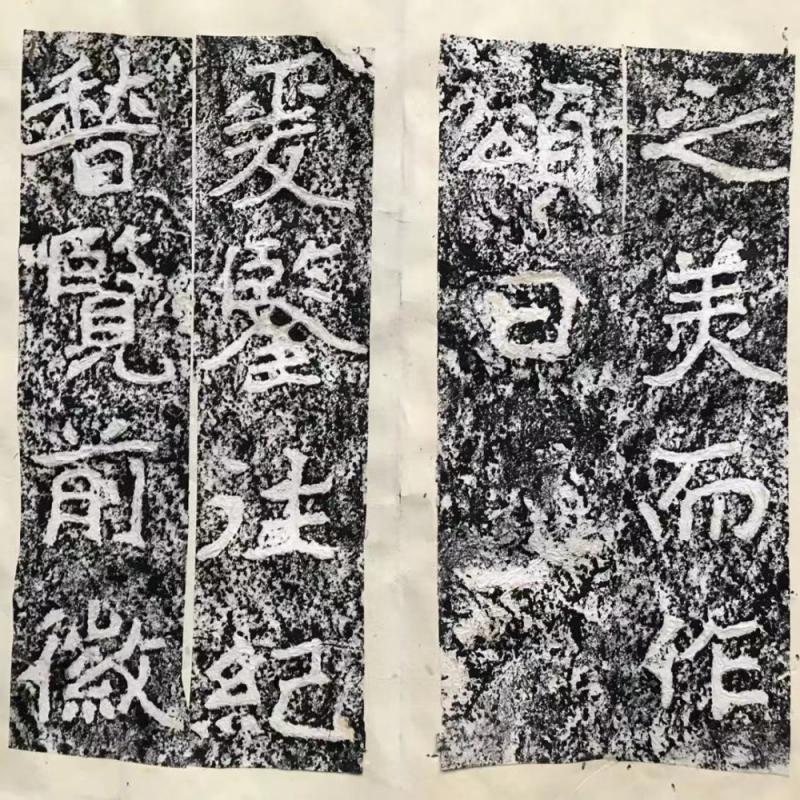 之美而作
頌曰
爰鑒往紀
稽覽前徽